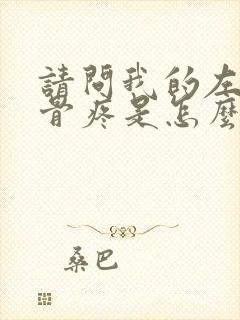 請問我的左
骨疼是怎麼
桑巴